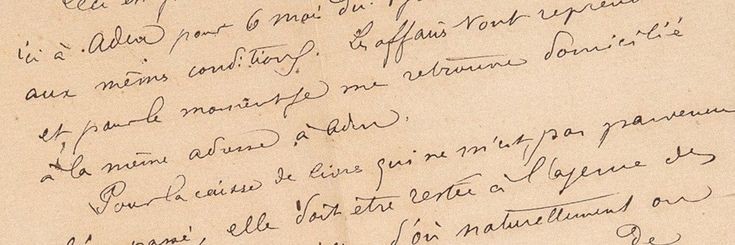 ici à Aden pour 6 mois du
aux mêmes conditions. Les affaires vont reprendre
et pour le moment je me retrouve domicilié
à la même adresse à Aden.
Pour la caisse de livres qui ne m'est pas parvenue
passé, elle doit être restée à l'agence des
d'où naturellement on
de